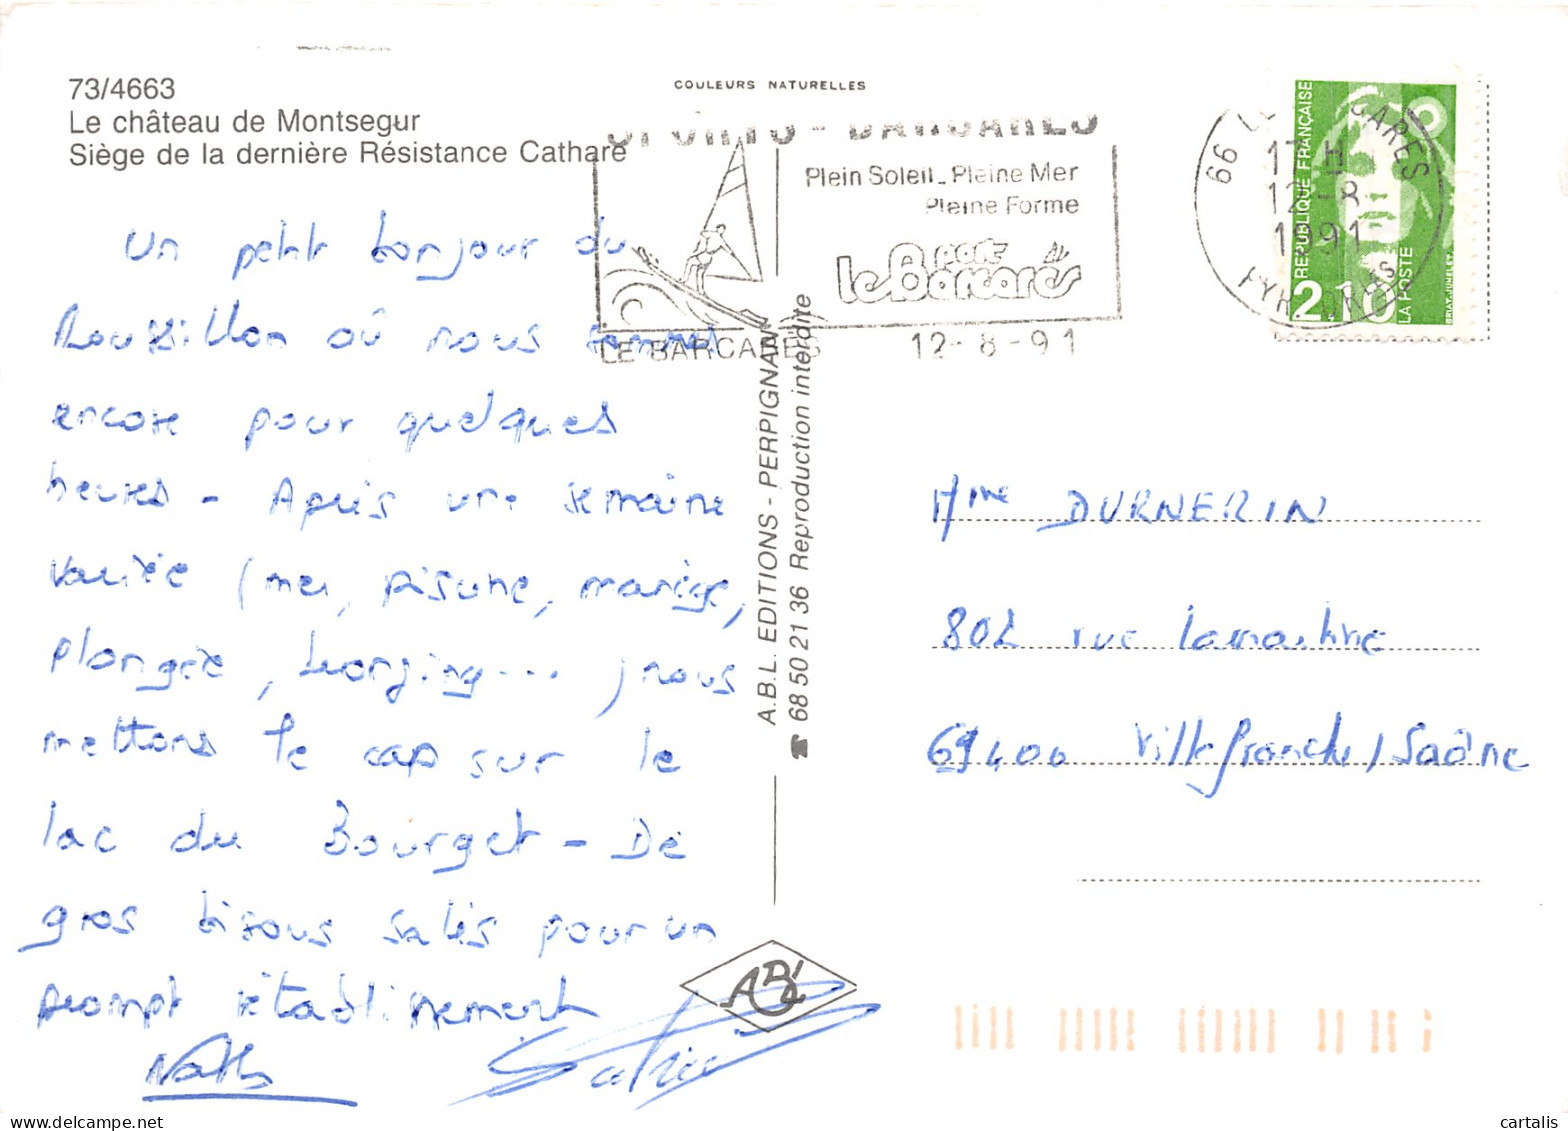 73/4663
Le château de Montsegur
Siège de la dernière Résistance Cathare
COULEURS NATURELLES
SPORTS - BARCARES
Plein Soleil - Pleine Mer
Pleine Forme
port
le Barcarès
LE BARCARES 12-8-91
66 LE BARCARES
17 H
12-8
1991
PYR. ORLES
REPUBLIQUE FRANÇAISE
2,10
LA POSTE
BRIAT-JUMELET
Un petit bonjour du
Roussillon où nous sommes
encore pour quelques
heures - Après une semaine
variée (mer, piscine, manège,
plongée, ... ) nous
mettons le cap sur le
lac du Bourget - De
gros bisous salés pour un
prompt rétablissement
Nath
A.B.L. EDITIONS - PERPIGNAN
☎ 68 50 21 36 Reproduction interdite
ABL
Mme DURNERIN
802 rue Lamartine
69400 Villefranche/Saône
cartalis